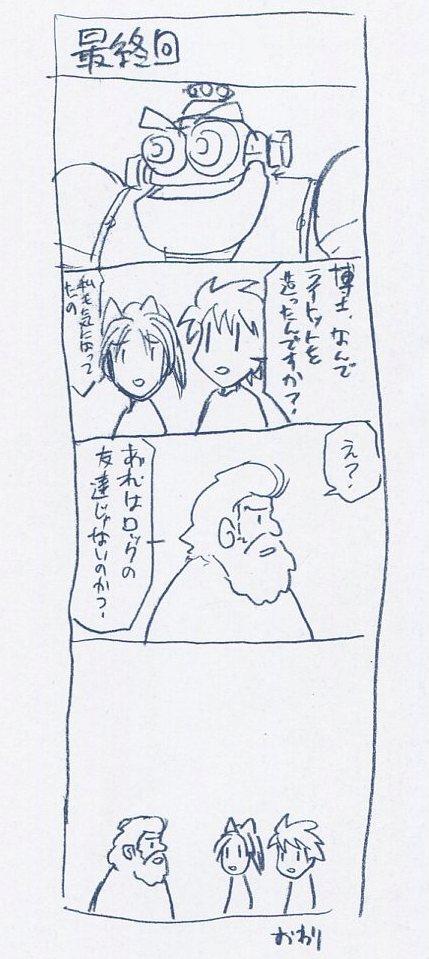 最終回
博士、なんで
ライトットを
造ったんですか?
私も気になって
たの
え?
あれはロックの
友達じゃないのか?
おわり